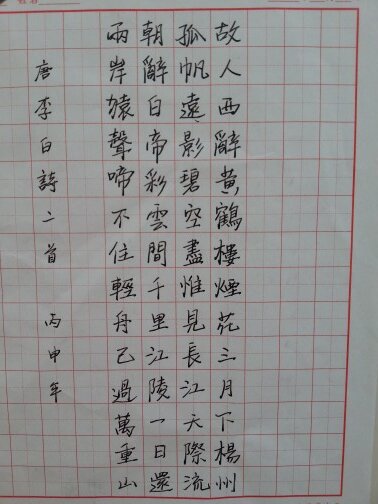 故人西辭黃鶴樓煙花三月下楊州
孤帆遠影碧空盡惟見長江天際流
朝辭白帝彩雲間千里江陵一日還
兩岸猿聲啼不住輕舟已過萬重山
唐李白詩二首 丙申年